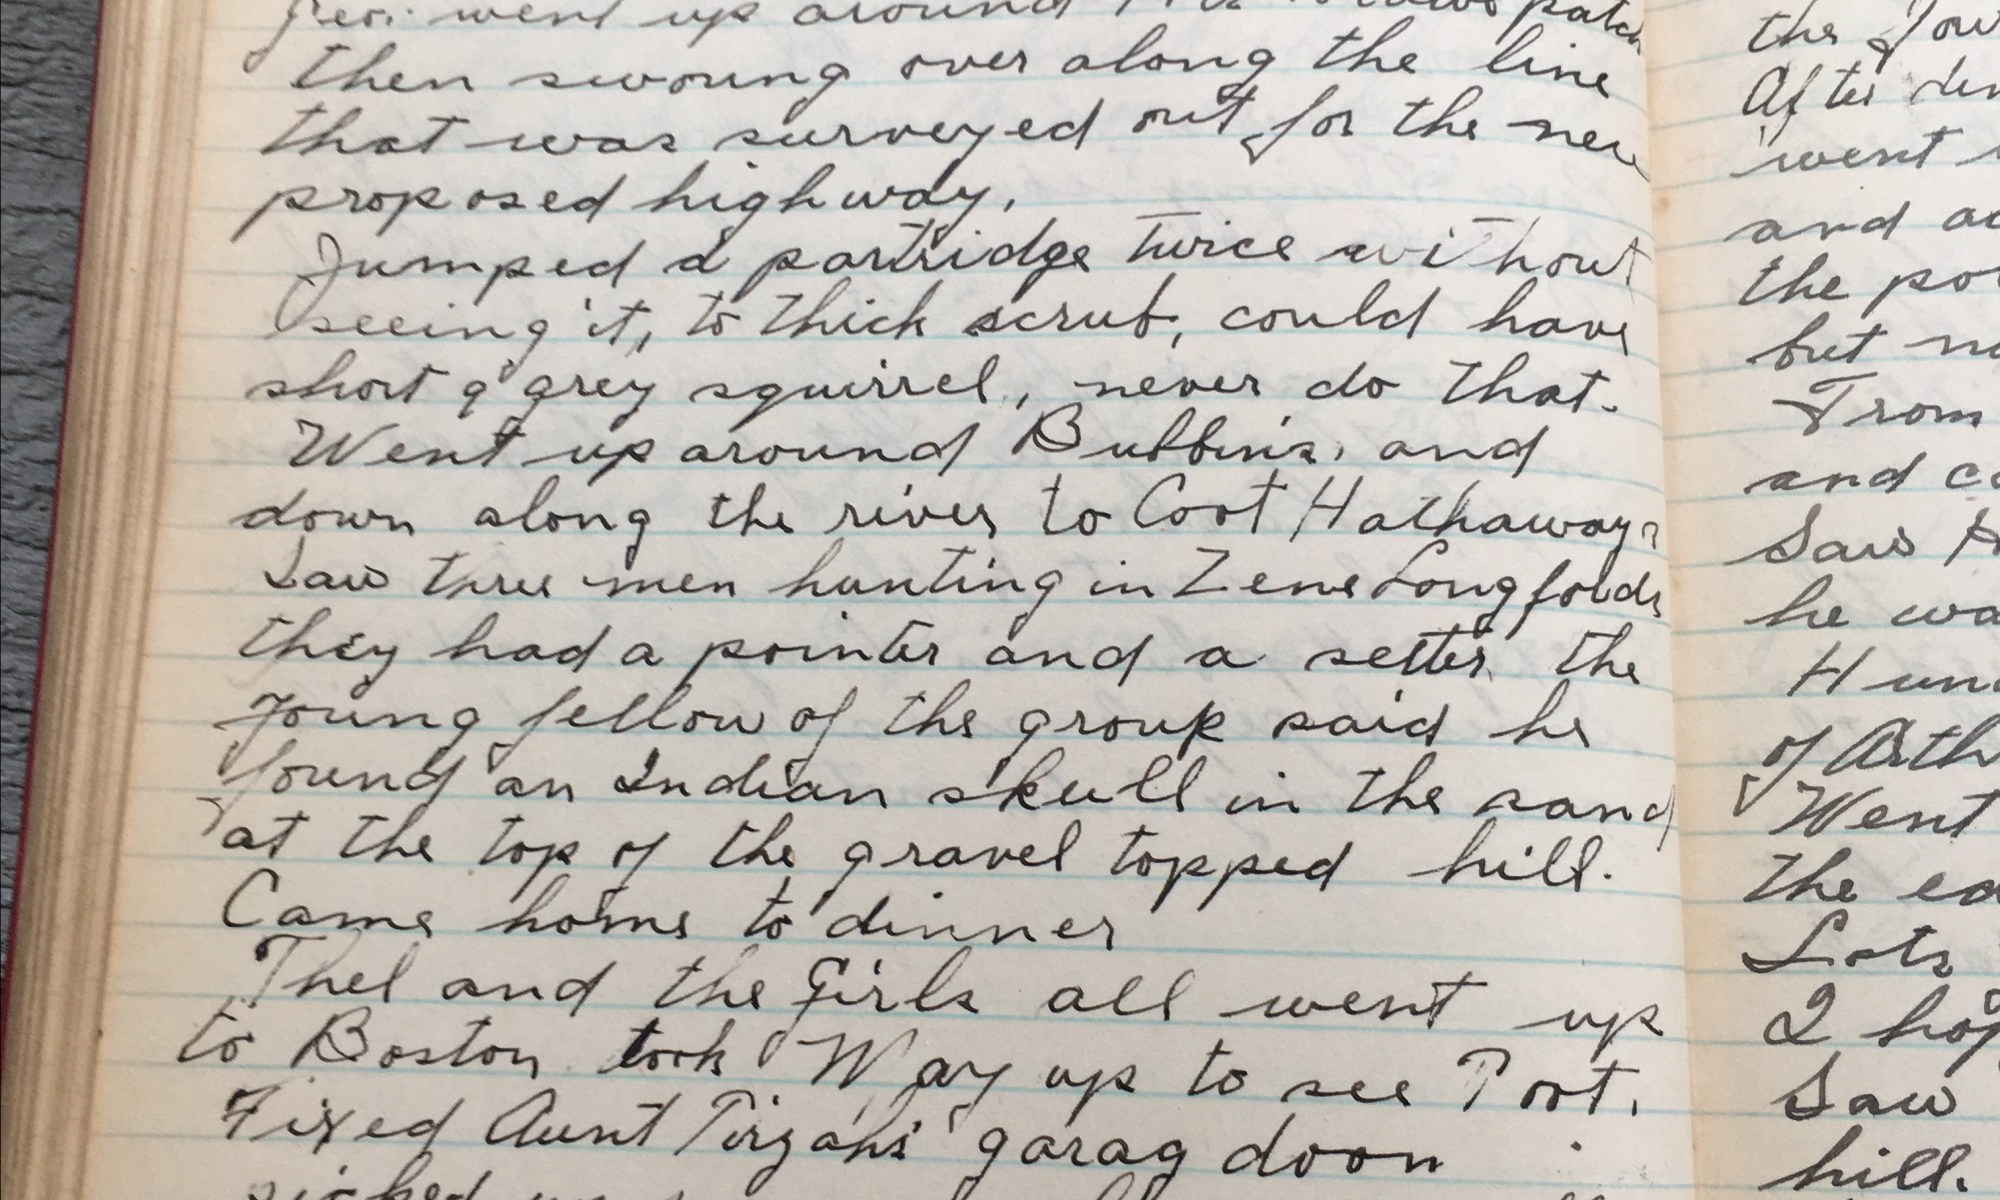 went up around patch
then swoung over along the line
that was surveyed out for the new
proposed highway,
Jumped a partridge twice without
seeing it, to thick scrub, could have
short a grey squirrel, never do that.
Went up around Bubbins, and
down along the river to Coot Hathaways
Saw three men hunting in Zene Longfolds
they had a pointer and a setter, the
young fellow of the group said he
found an Indian skull in the sand
at the top of the gravel topped hill.
Came home to dinner
Thel and the Girls all went up
to Boston took Way up to see Poot.
Fixed Aunt Tirzahs' garag doon
the
After
went
and
the
but
From
and
Saw
he
Hun
of Arth
Went
the
Lots
I hop
Saw
hill.